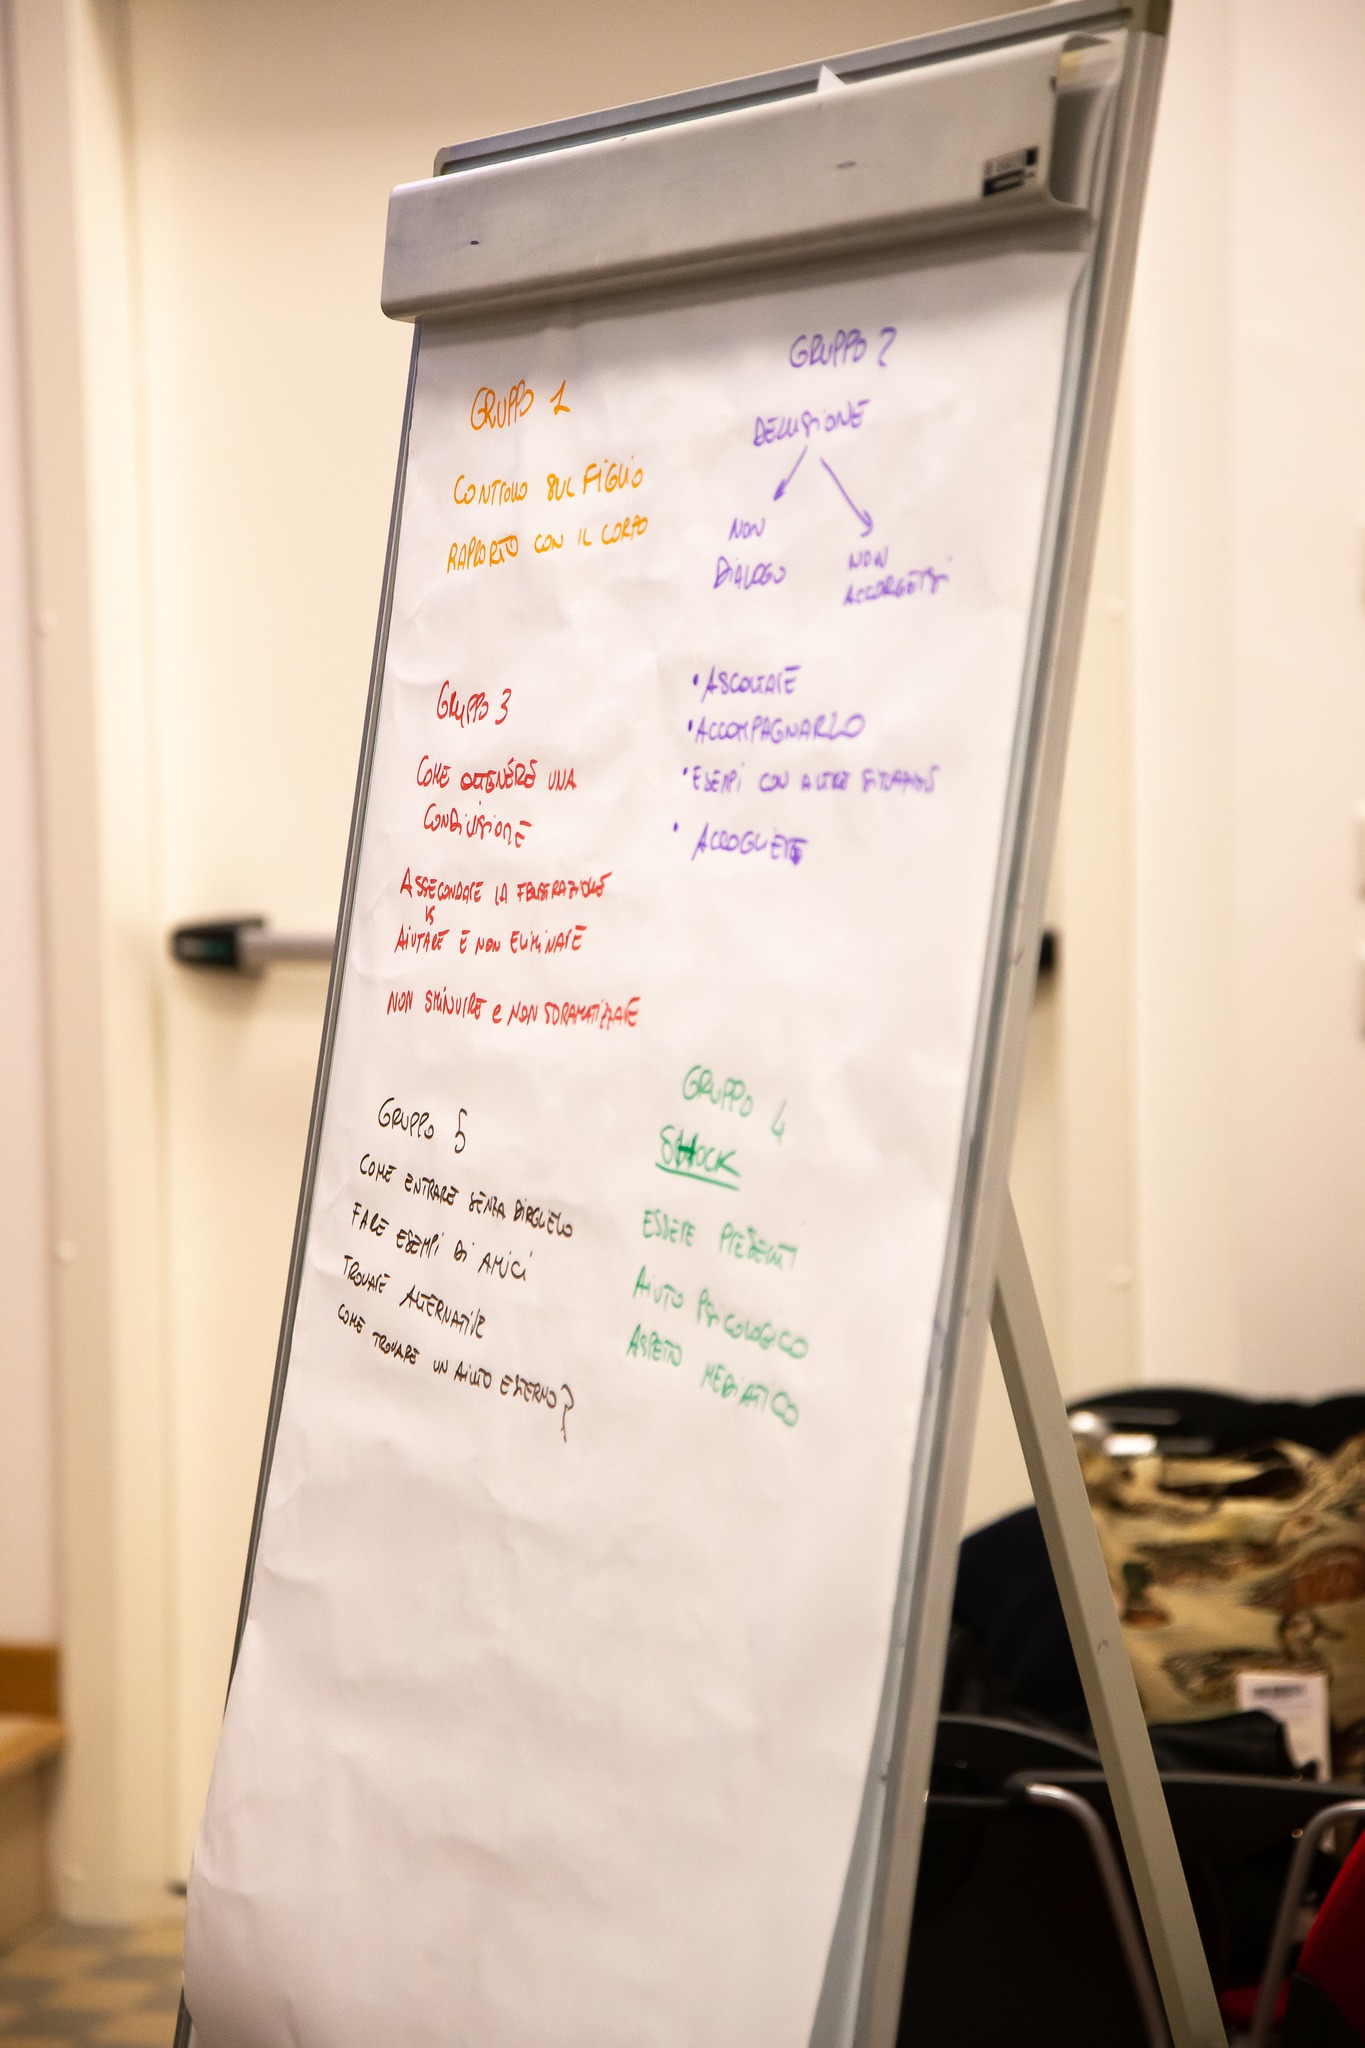 GRUPPO 1
CONTROLLO SUL FIGLIO
RAPPORTO CON IL CORPO
GRUPPO 2
DELUSIONE
NON
DIALOGO
NON
ACCORGERSI
• ASCOLTARE
• ACCOMPAGNARLO
• ESEMPI CON ALTRE SITUAZIONI
• ACCOGLIERE
GRUPPO 3
COME OTTENERE UNA
CONDIVISIONE
ASSECONDARE LA
VS
AIUTARE E NON ELIMINARE
NON SMINUIRE e NON SDRAMATIZZARE
GRUPPO 4
SHOCK
ESSERE PRESENTI
AIUTO PSICOLOGICO
ASPETTO MEDIATICO
GRUPPO 5
COME ENTRARE SENZA DIRGLIELO
FARE ESEMPI DI AMICI
TROVARE ALTERNATIVE
COME TROVARE UN AIUTO ESTERNO?